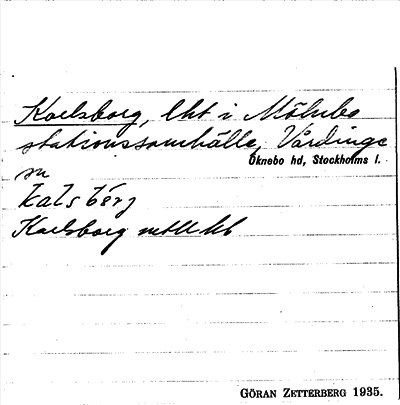 Karlsborg, lht i Mölnbo
stationssamhälle, Vårdinge
Öknebo hd, Stockholms l.
sn
kalsbérg
Karlsborg
GÖRAN ZETTERBERG 1935.